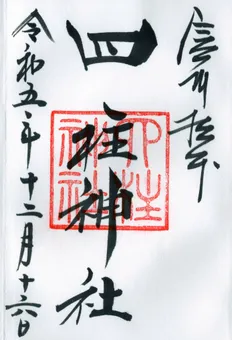 信州松本
四柱神社
四柱神社
令和五年十二月十六日